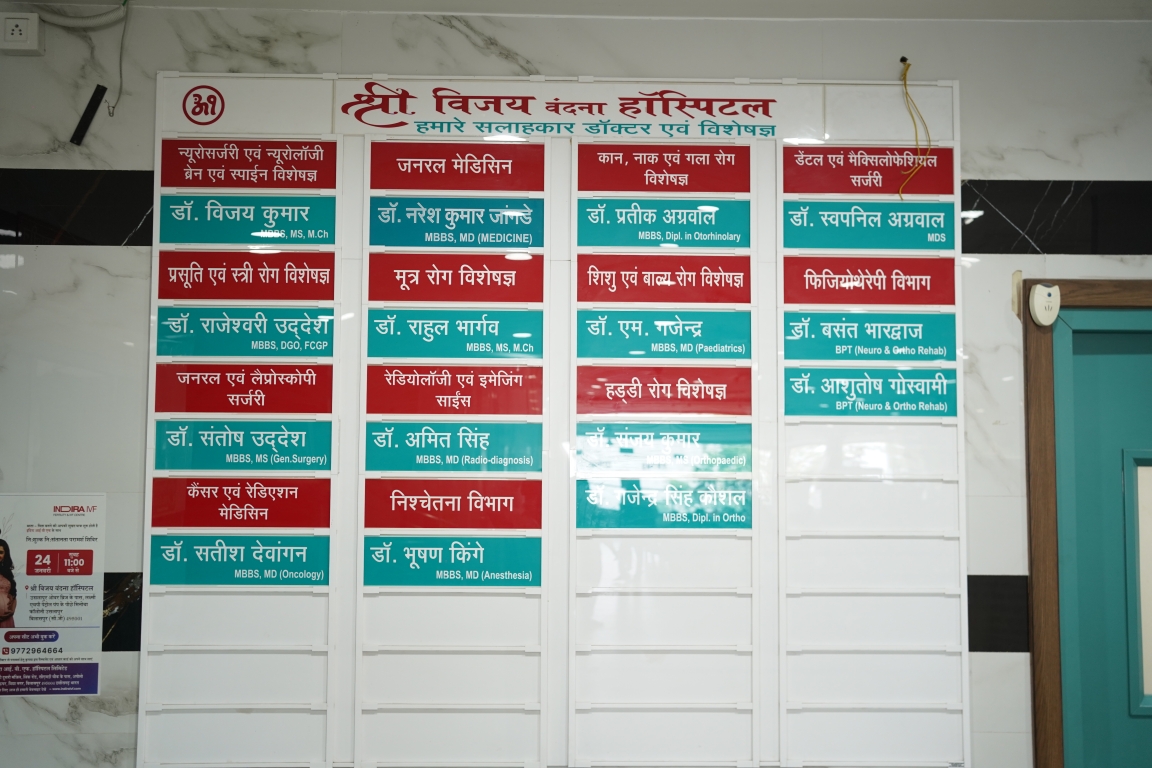 श्री
श्री विजय वंदना हॉस्पिटल
हमारे सलाहकार डॉक्टर एवं विशेषज्ञ
न्यूरोसर्जरी एवं न्यूरोलॉजी
ब्रेन एवं स्पाईन विशेषज्ञ
डॉ. विजय कुमार
MBBS, MS, M.Ch
प्रसूति एवं स्त्री रोग विशेषज्ञ
डॉ. राजेश्वरी उद्देश
MBBS, DGO, FCGP
जनरल एवं लैप्रोस्कोपी
सर्जरी
डॉ. संतोष उद्देश
MBBS, MS (Gen.Surgery)
कैंसर एवं रेडिएशन
मेडिसिन
डॉ. सतीश देवांगन
MBBS, MD (Oncology)
जनरल मेडिसिन
डॉ. नरेश कुमार जांगडे
MBBS, MD (MEDICINE)
मूत्र रोग विशेषज्ञ
डॉ. राहुल भार्गव
MBBS, MS, M.Ch
रेडियोलॉजी एवं इमेजिंग
साईंस
डॉ. अमित सिंह
MBBS, MD (Radio-diagnosis)
निश्चेतना विभाग
डॉ. भूषण किंगे
MBBS, MD (Anesthesia)
कान, नाक एवं गला रोग
विशेषज्ञ
डॉ. प्रतीक अग्रवाल
MBBS, Dipl. in Otorhinolary
शिशु एवं बाल्य रोग विशेषज्ञ
डॉ. एम. गजेन्द्र
MBBS, MD (Paediatrics)
हड्डी रोग विशेषज्ञ
डॉ. संजय कुमार
MBBS, MS (Orthopaedic)
डॉ. गजेन्द्र सिंह कौशल
MBBS, Dipl. in Ortho
डेंटल एवं मैक्सिलोफेशियल
सर्जरी
डॉ. स्वपनिल अग्रवाल
MDS
फिजियोथेरेपी विभाग
डॉ. बसंत भारद्वाज
BPT (Neuro & Ortho Rehab)
डॉ. आशुतोष गोस्वामी
BPT (Neuro & Ortho Rehab)
INDIRA IVF
24
जनवरी
सुबह
11:00
बजे से
श्री विजय वंदना हॉस्पिटल
9772964664